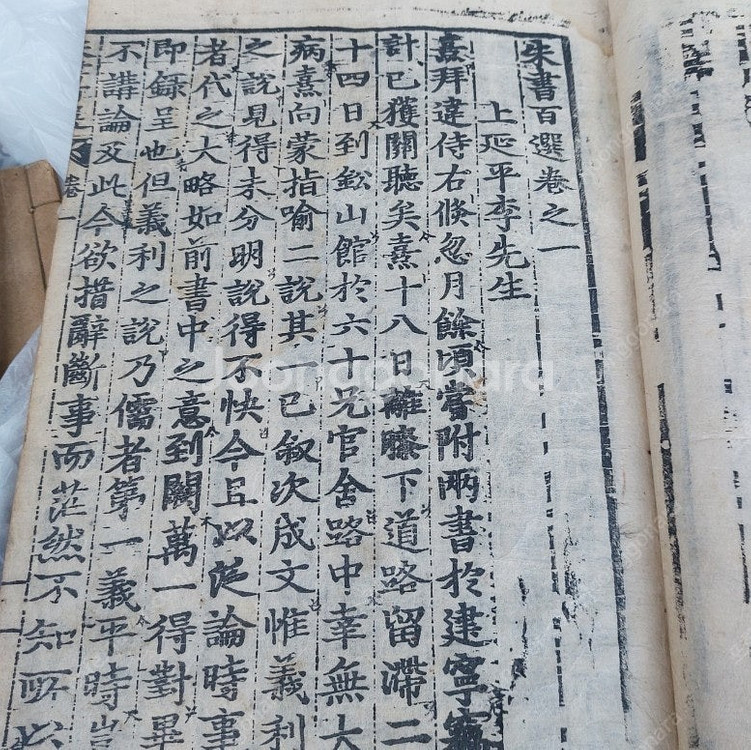 朱書百選卷之一
上延平李先生
熹拜違侍右倏忽月餘頃嘗附兩書於建寧竊
計已獲關聽矣熹十八日離膝下道路留滯二
十四日到鈆山館於六十兄官舍路中幸無大
病熹向蒙指喻二說其一已敘次成文惟義利
之說見得未分明說得不快今且以泛論時事
者代之大略如前書中之意到闕萬一得對畢
即錄呈也但義利之說乃儒者第一義平時豈
不講論及此今欲措辭斷事而茫然不知所以
卷一
Joonggonara